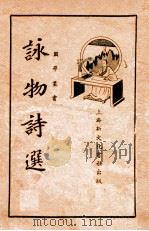 國學叢書
詠物詩選
上海新文化書社出版